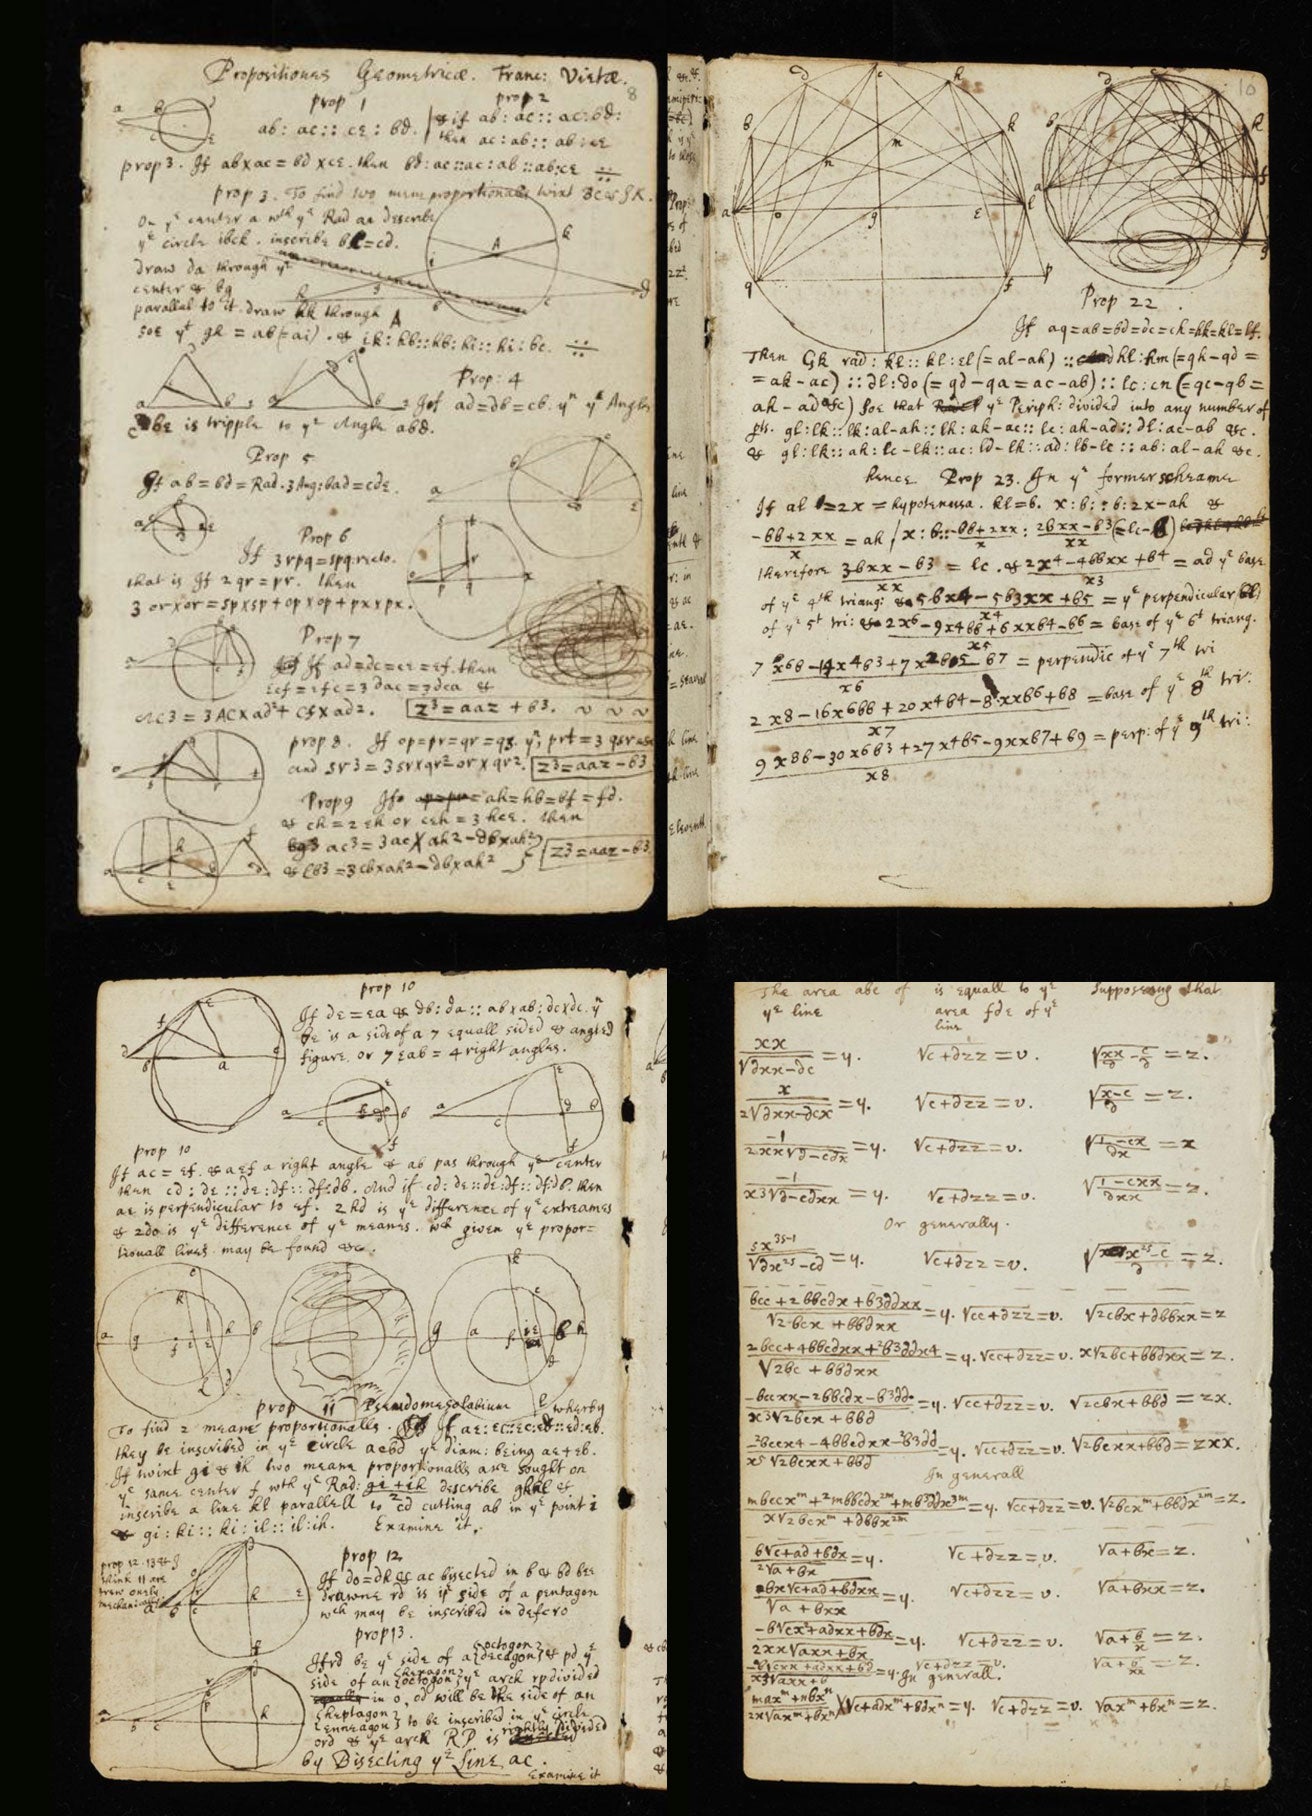 Propositiones Geometricæ. Franc: Vietæ.
8
prop 1
ab : ac :: ce : bd.
prop 2
& if ab : ac :: ac : bd :
then ac : ab :: ab : ce
prop 3. If ab×ac = bd×ce. then bd : ac :: ac : ab :: ab : ce
prop 3. To find two mean proportionalls twixt
On yᵉ center a wᵗʰ yᵉ Rad aa describe
yᵉ circle ibck. inscribe bc = cd.
draw da through yᵉ
center & bg
parallal to it. draw hk through A
soe yᵗ gh = ab (= ai). & ik : hb :: hb : hi :: hi : bc.
Prop: 4
If ad = db = cb yⁿ yᵉ Angle
cbe is tripple to yᵉ Angle abd.
Prop 5
If ab = bd = Rad. 3 Ang: bad = cde.
Prop 6
If 3rpq = spq recto.
that is If 2qr = pr. then
3 or×or = sp×sp + op×op + px×px.
Prop 7
If ad = dc = ce = ef. then
ecf = efc = 3 dac = 3 dca &
ac3 = 3AC×ad² + cf×ad².
z³ = aaz + b³.
prop 8. If op = pr = qr = qs. yⁿ; prt = 3 qsr
and sr³ = 3sr×qr² or×qr².
z³ = aaz − b³
Prop 9 If ah = hb = bf = fd.
& ch = 2 eh or ceh = 3 hce. then
ac³ = 3ac × ah² − db×ah²
& cb³ = 3cb×ah² − db×ah²
z³ = aaz − b³
10
Prop 22.
If aq = ab = bd = dc = ch = hk = kl = lf.
Then Gk rad: kl :: kl : el (= al − ah) :: hl : hm (= qh − qd =
= ak − ac) :: dl : do (= qd − qa = ac − ab) :: lc : cn (= qc − qb =
ah − ad &c) soe that yᵉ Periph: divided into any number of
pts. gl : lk :: lk : al − ah :: lh : ak − ac :: lc : ah − ad :: dl : ac − ab &c.
& gl : lk :: ah : lc − lk :: ac : ld − lh :: ad : lb − lc :: ab : al − ah &c.
hence Prop 23. In yᵉ former scheame
If al = 2x = hypotenusa. kl = b. x : b :: b : 2x − ah &
−bb + 2xx / x = ah / x : b :: −bb + 2xx / x : 2bxx − b3 / xx (= lc − b)
therefore 3bxx − b3 / xx = lc. & 2x4 − 4bbxx + b4 / x3 = ad yᵉ base
of yᵉ 4ᵗʰ triang: & 5bx4 − 5b3xx + b5 / x4 = yᵉ perpendicular (bl)
of yᵉ 5ᵗ tri: & 2x6 − 9x4bb + 6xxb4 − b6 / x5 = base of yᵉ 6ᵗ triang.
7x6b − 14x4b3 + 7x2b5 − b7 / x6 = perpendic of yᵉ 7ᵗʰ tri
2x8 − 16x6bb + 20x4b4 − 8xxb6 + b8 / x7 = base of yᵉ 8ᵗʰ tri:
9x8b − 30x6b3 + 27x4b5 − 9xxb7 + b9 / x8 = perp: of yᵉ 9ᵗʰ tri:
prop 10
If de = ea & db : da :: ab×ab : dc×dc. yⁿ
be is a side of a 7 equall sided & angled
figure. or 7 eab = 4 right angles.
prop 10
If ac = ef. & aef a right angle & ab pas through yᵉ center
then cd : de :: de : df :: df : db. And if cd : de :: de : df :: df : db. then
ae is perpendicular to ef. 2hd is yᵉ difference of yᵉ extreames
& 2do is yᵉ difference of yᵉ meanes. wᶜʰ given yᵉ propor=
tionall lines may be found &c.
prop 11 Pseudomesolabium
To find 2 meane proportionalls. If ae : ec :: ec : ed :: ed : eb. wherby
they be inscribed in yᵉ circle acbd yᵉ diam: being ae + eb.
If twixt gi & ih two meane proportionalls are sought on
yᵉ same center f wᵗʰ yᵉ Rad: gi + ih / 2 describe ghkl &
inscribe a line kl parallell to cd cutting ab in yᵉ point i
& gi : ki :: ki : il :: il : ih. Examine it.
prop 12. 13 & I
think 11 are
trew onely
mechanicall
prop 12
If do = dk & ac bisected in b & bd bee
drawne rd is yᵉ side of a pentagon
wᶜʰ may be inscribed in defcro
prop 13.
If rd be yᵉ side of a {octogon / decagon} & pd yᵉ
side of an {hexagon / octogon} yᵉ arch rp divided
in o, od will be the side of an
{heptagon / enneagon} to be inscribed in yᵉ circle
ord & yᵉ arch RP is rightly divided
by Bisecting yᵉ line ac.
Examine it
The area abc of is equall to yᵉ Supposeing that
yᵉ line area fde of yᵉ
line
xx / √dxx−dc = y. √c+dzz = v. √xx/d − c/d = z.
x / 2√dxx−dcx = y. √c+dzz = v. √x−c/d = z.
−1 / 2xx√d−cdx = y. √c+dzz = v. √1−cx/dx = x
−1 / x3√d−cdxx = y. √c+dzz = v. √1−cxx/dxx = z.
Or generally.
√c+dzz = v.
bcc + 2bbcdx + b3ddxx / √2bcx + bbdxx = y. √cc+dzz = v. √2cbx+dbbxx = z
2bcc + 4bbcdxx + 2b3ddx4 / √2bc + bbdxx = y. √cc+dzz = v. x√2bc+bbdxx = z.
−bccxx − 2bbcdx − b3dd / x3√2bcx + bbd = y. √cc+dzz = v. √2cbx+bbd = zx.
−2bccx4 − 4bbcdxx − 2b3dd / x5√2bcxx + bbd = y. √cc+dzz = v. √2bcxx+bbd = zxx.
In generall
mbccxᵐ + 2mbbcdx²ᵐ + mb³ddx³ᵐ / x√2bcxᵐ + dbbx²ᵐ = y. √cc+dzz = v. √2bcxᵐ+bbdx²ᵐ = z.
b√c+ad+bdx / 2√a+bx = y. √c+dzz = v. √a+bx = z.
bx√c+ad+bdxx / √a+bxx = y. √c+dzz = v. √a+bxx = z.
−b√cx²+adxx+bdx / 2xx√axx+bx = y. √c+dzz = v. √a+b/x = z.
= y. In generall. √c+dzz = v. √a+b/xx = z.
maxᵐ + nbxⁿ / 2x√axᵐ+bxⁿ × √c+adxᵐ+bdxⁿ = y. √c+dzz = v. √axᵐ+bxⁿ = z.